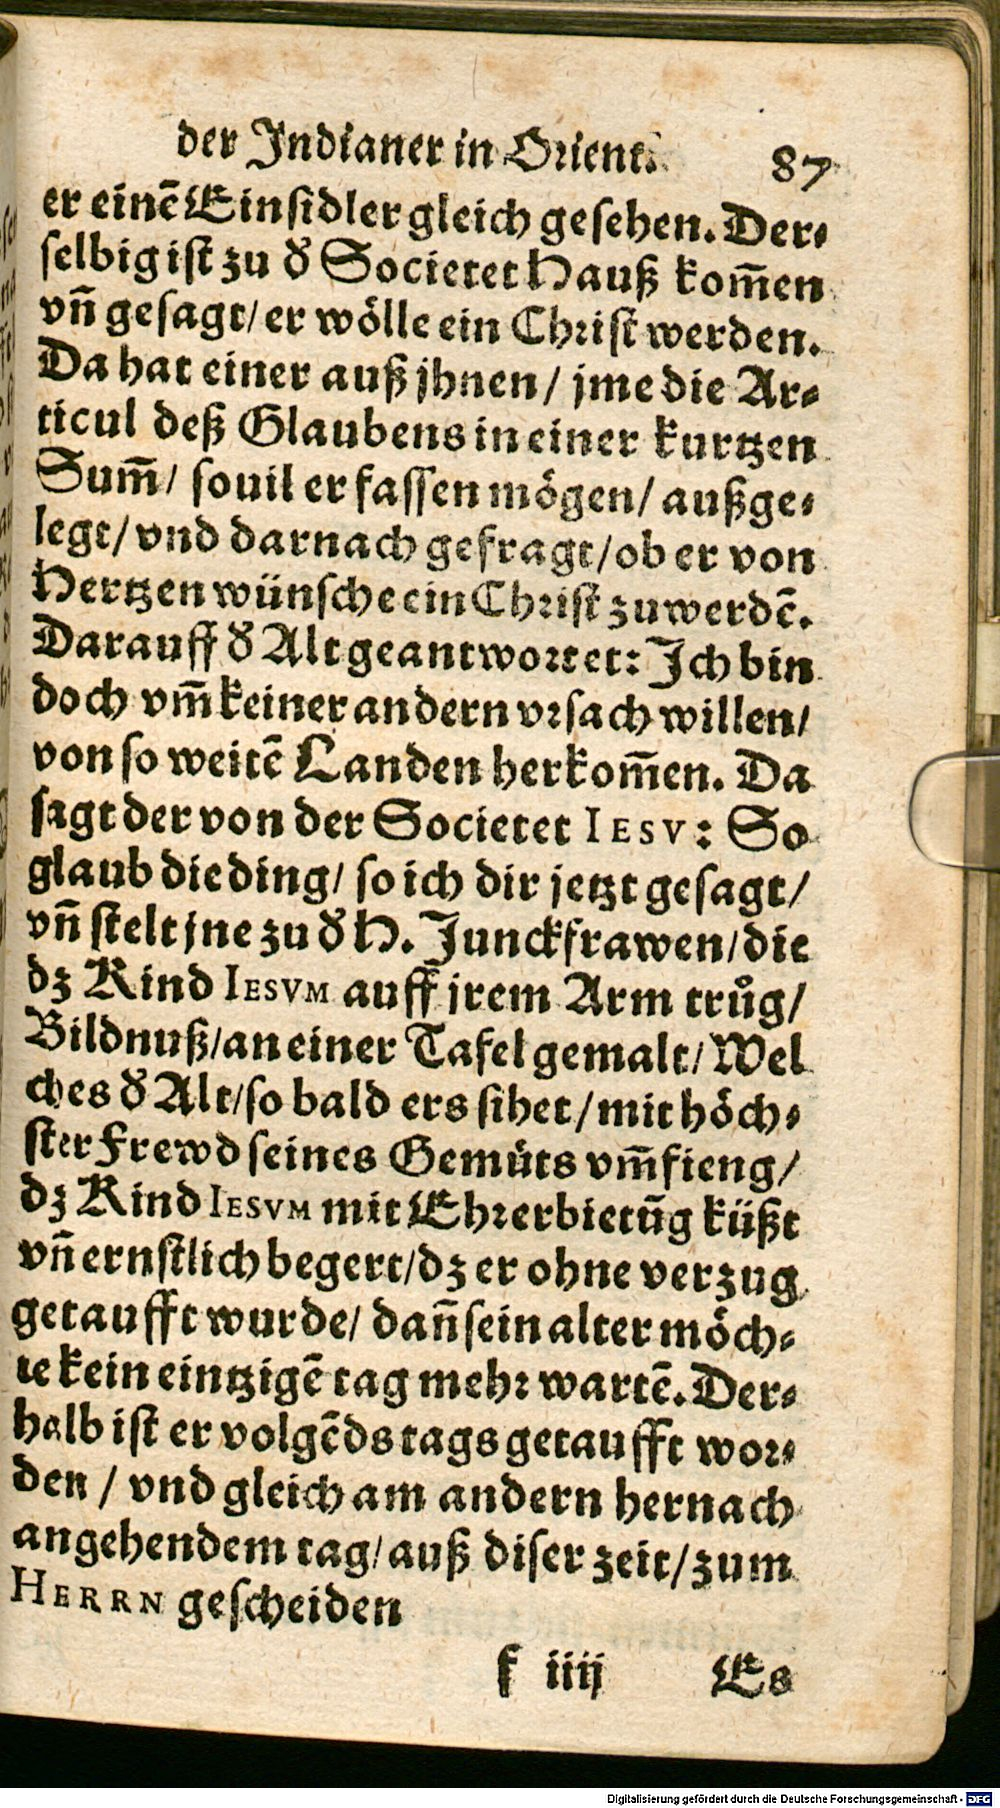 der Indianer in Orient. 87
er einē Einsidler gleich gesehen. Der-
selbig ist zu d̕ Societet Hauß kom̄en
vn̄ gesagt/ er wölle ein Christ werden.
Da hat einer auß jhnen/ jme die Ar-
ticul deß Glaubens in einer kurtzen
Sum̄/ souil er fassen mögen/ außge-
legt/ vnd darnach gefragt/ ob er von
Hertzen wünsche ein Christ zu werdē.
Darauff d̕ Alt geantwortet: Ich bin
doch vm̄ keiner andern vrsach willen/
von so weitē Landen herkom̄en. Da
sagt der von der Societet IESV: So
glaub die ding/ so ich dir jetzt gesagt/
vn̄ stelt jne zu d̕ H. Junckfrawen/ die
dz Kind IESVM auff jrem Arm trůg/
Bildnuß/ an einer Tafel gemalt/ Wel
ches d̕ Alt/ so bald ers sihet/ mit höch-
ster Frewd seines Gemüts vm̄fieng/
dz Kind IESVM mit Ehrerbietūg küßt
vn̄ ernstlich begert/ dz er ohne verzug
getaufft wurde/ dan̄ sein alter möch-
te kein eintzigē tag mehr wartē. Der-
halb ist er volgēds tags getaufft wor-
den / vnd gleich am andern hernach
angehendem tag/ auß diser zeit/ zum
HERRN gescheiden
f iiij Es
Digitalisierung gefördert durch die Deutsche Forschungsgemeinschaft - DFG